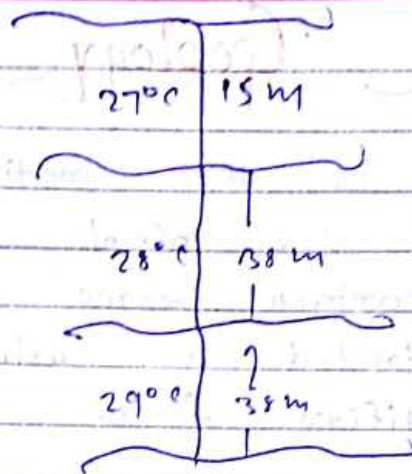 27°C 15 m
28°C 38 m
29°C 38 m